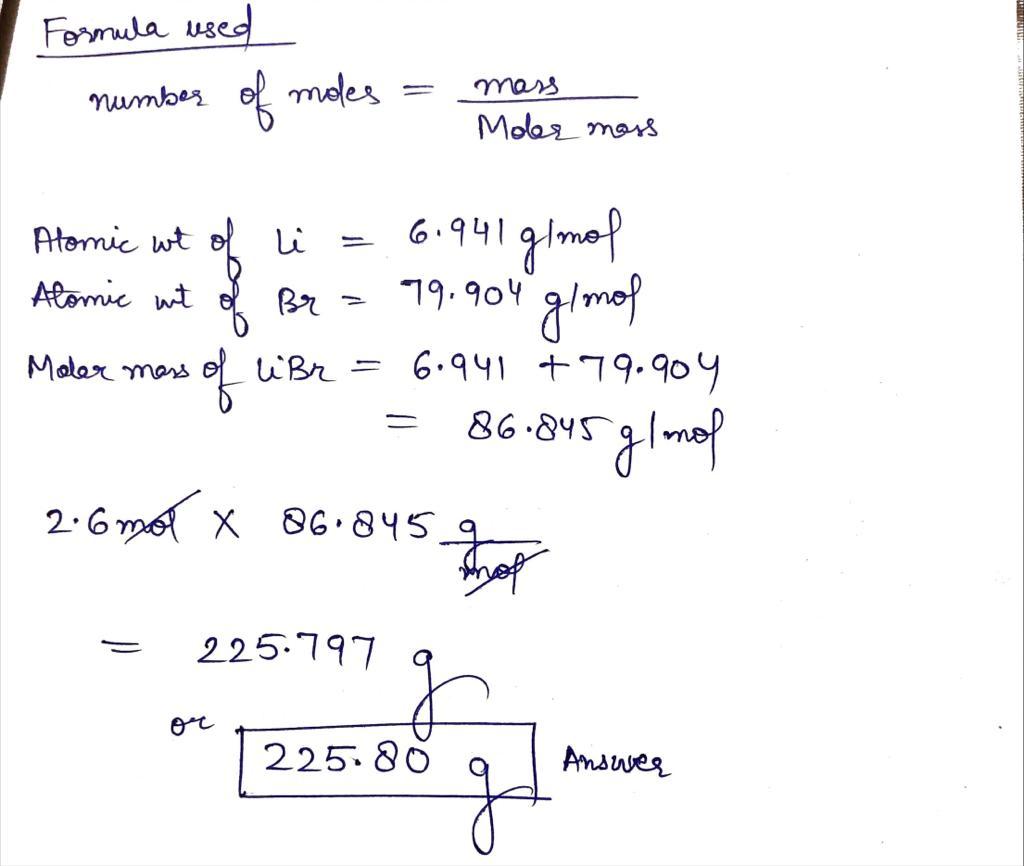 Formula used
number of moles = mass
Molar mass
Atomic wt of Li = 6.941 g/mol
Atomic wt of Br = 79.904 g/mol
Molar mass of LiBr = 6.941 + 79.904
= 86.845 g/mol
2.6 mol X 86.845 g
mol
= 225.797 g
or
225.80 g Answer